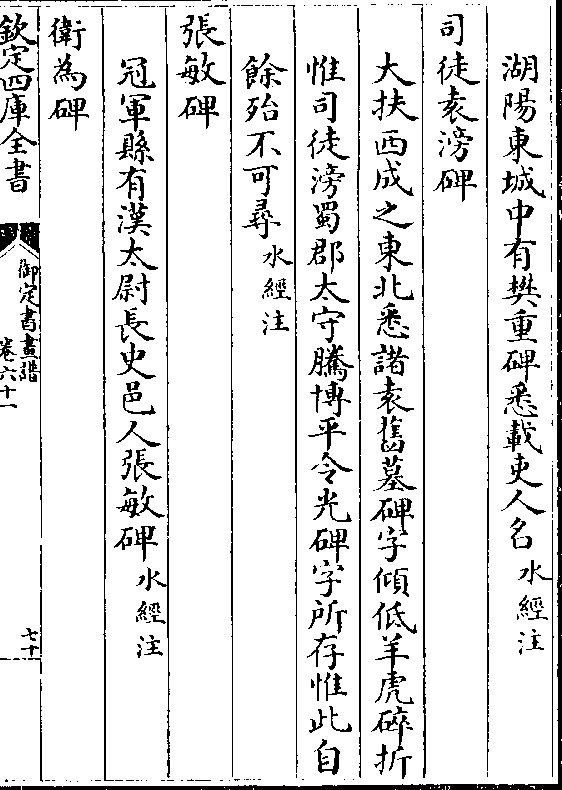 湖陽東城中有樊重碑悉載吏人名水經注
司徒袁滂碑
大扶西成之東北悉諸袁舊墓碑字傾低羊虎碎折
惟司徒滂蜀郡太守騰博平令光碑字所存惟此自
餘殆不可尋水經注
張敏碑
冠軍縣有漢太尉長史邑人張敏碑水經注
衛為碑
欽定四庫全書
御定書畫譜
卷六十一
七十